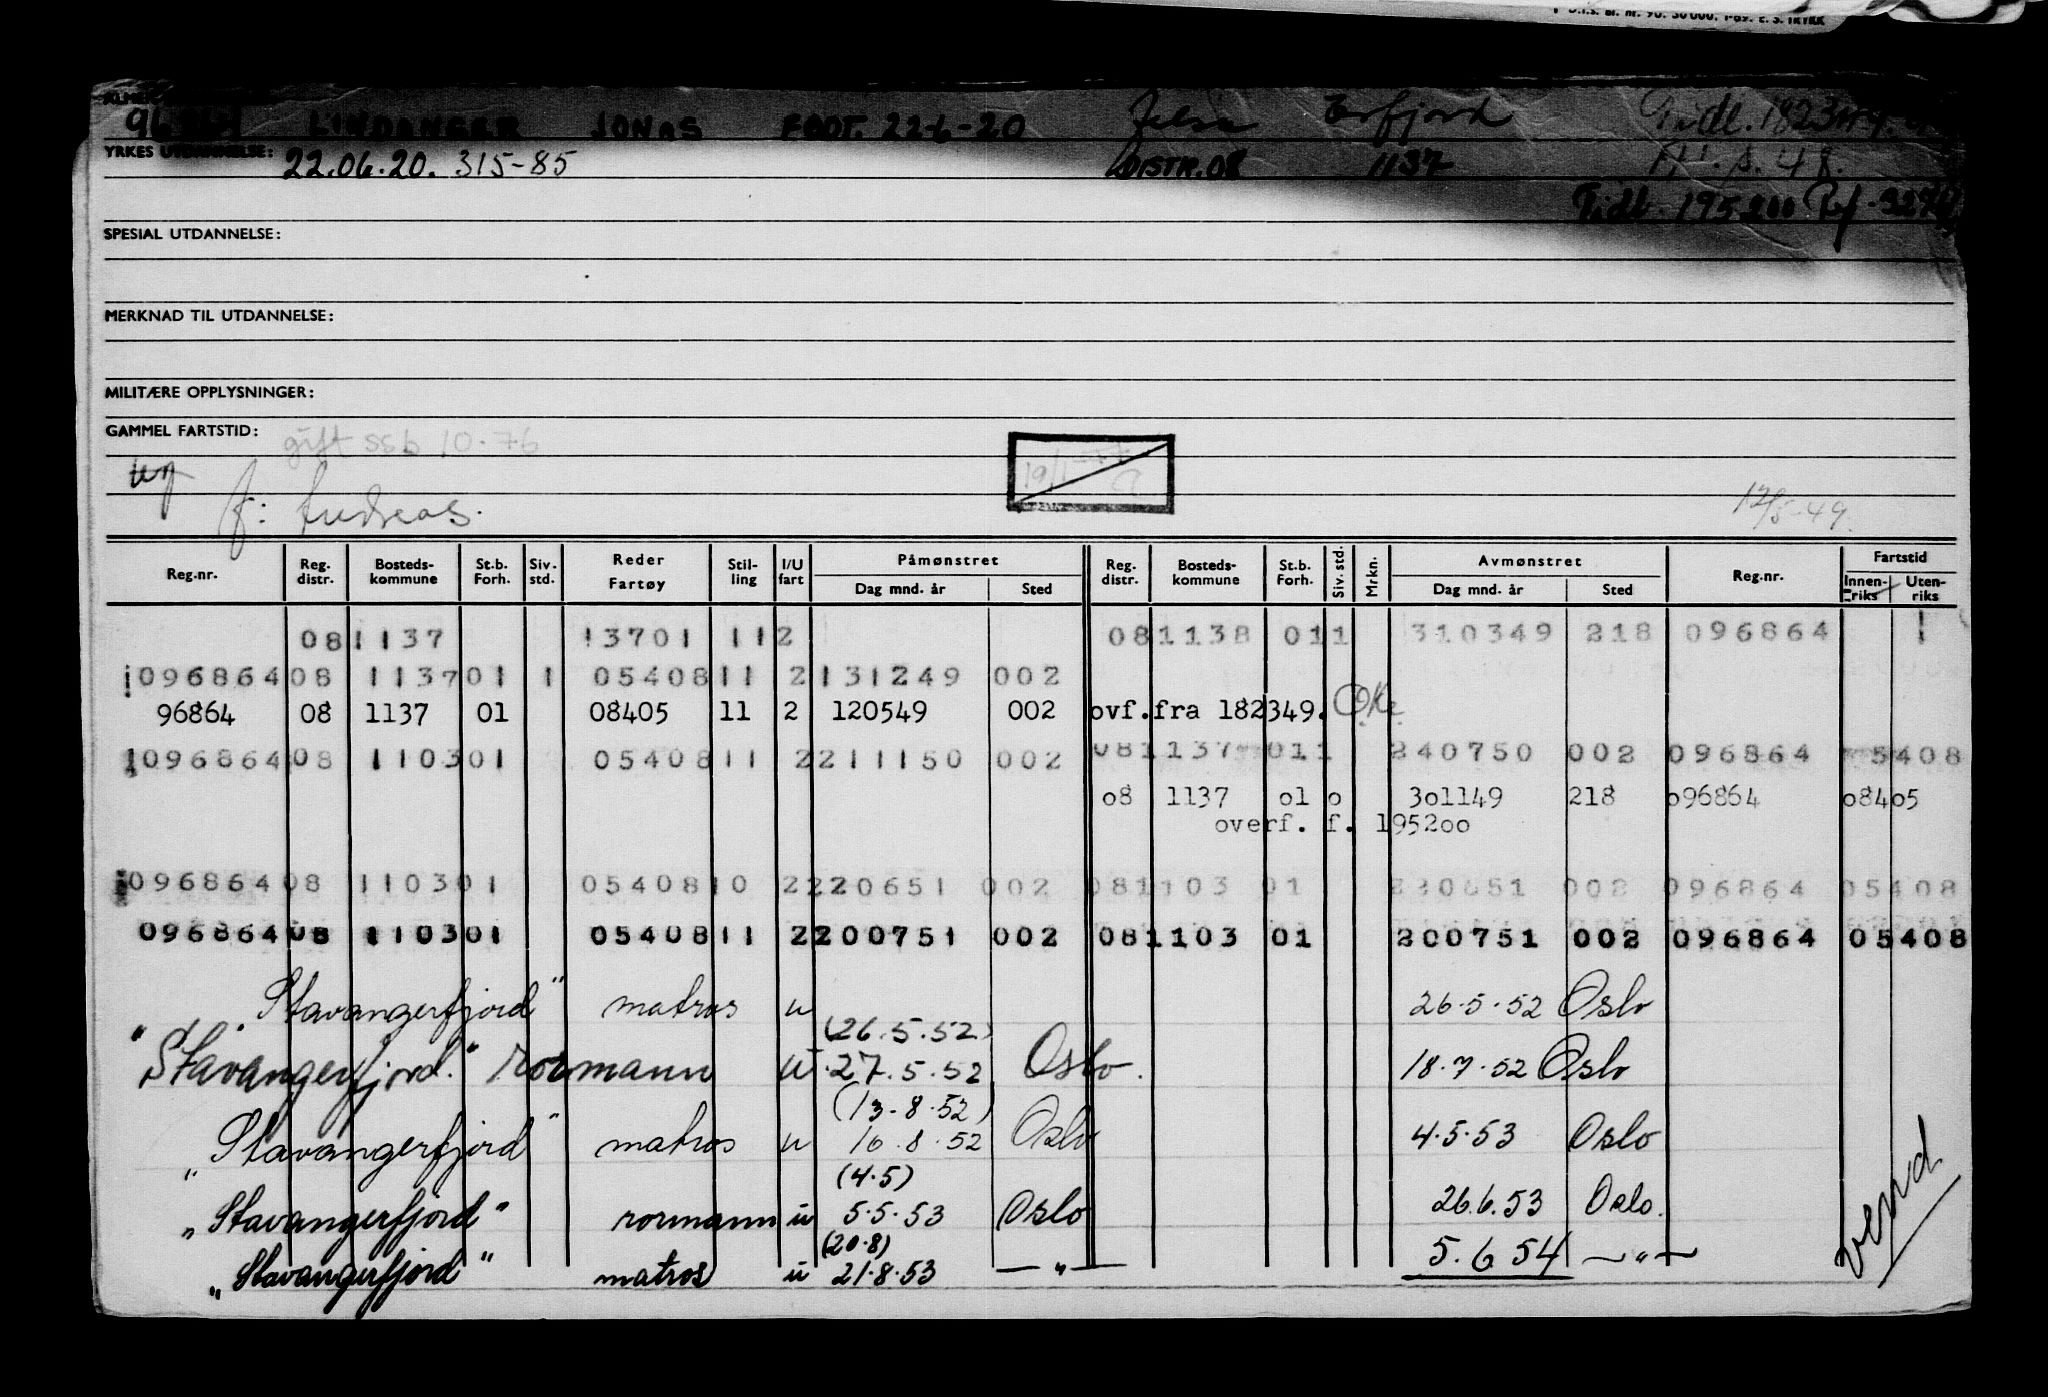 LINDANGER JONAS FØDT. 22-6-20 Jelsa Erfjord
YRKES UTDANNELSE: 22.06.20. 315-85 DISTR.08 1137
Tidl. 195200
SPESIAL UTDANNELSE:
MERKNAD TIL UTDANNELSE:
MILITÆRE OPPLYSNINGER:
GAMMEL FARTSTID: gift ssb 10-76
f: Andreas.
12/5-49.
Reg.nr. Reg. distr. Bosteds-kommune St.b. Forh. Siv. std. Reder Fartøy Stil-ling I/U fart Påmønstret Dag mnd. år Sted Reg. distr. Bosteds-kommune St.b. Forh. Siv. std. Mrkn. Avmønstret Dag mnd. år Sted Reg.nr. Fartstid Innen-riks Uten-riks
08 1137 13701 11 2 08 1138 01 1 310349 218 096864
096864 08 1137 01 1 05408 11 2 131249 002
96864 08 1137 01 08405 11 2 120549 002 ovf.fra 182349. O.K.
096864 08 1103 01 05408 11 2 211150 002 08 1137 01 1 240750 002 096864 5408
o8 1137 o1 o 3o1149 218 o96864 o84o5
overf. f. 1952oo
096864 08 1103 01 05408 10 2 220651 002 08 1103 01 220651 002 096864 05408
096864 08 1103 01 05408 11 2 200751 002 08 1103 01 200751 002 096864 05408
Stavangerfjord" matros u 26.5.52 Oslo
(26.5.52)
"Stavangerfjord." rormann u 27.5.52 Oslo. 18.7.52 Oslo
(13.8.52)
"Stavangerfjord" matros u 16.8.52 Oslo 4.5.53 Oslo
(4.5)
"Stavangerfjord" rormann u 5.5.53 Oslo 26.6.53 Oslo.
(20.8)
"Stavangerfjord" matros u 21.8.53 — " — 5.6 54 — " —
vend